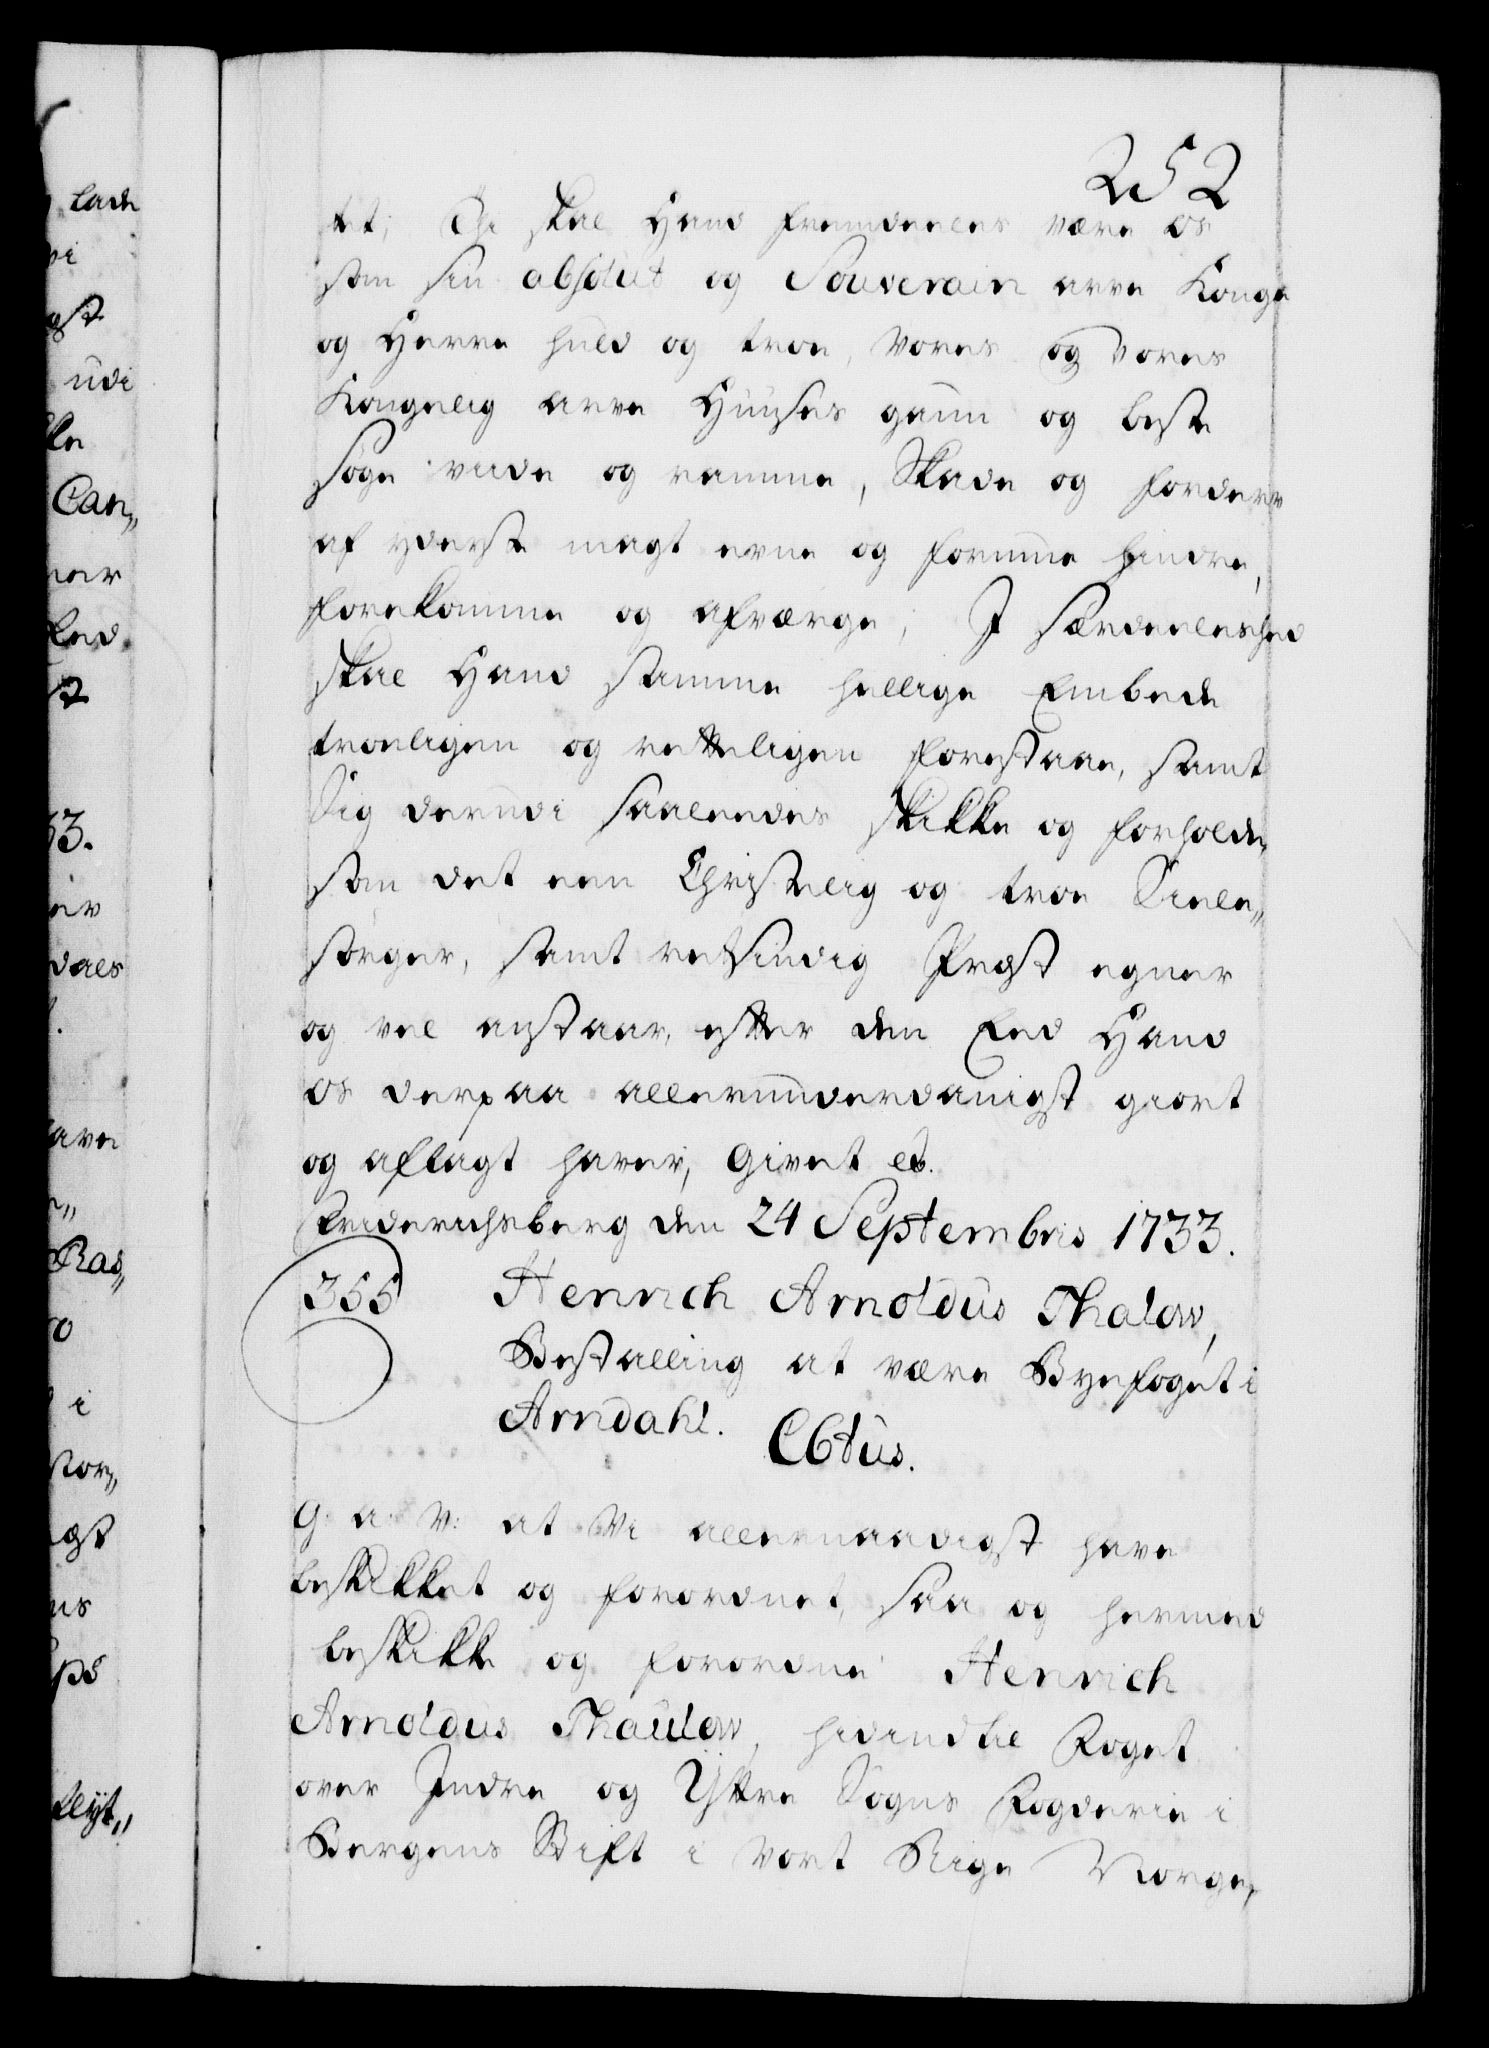 252
tet; Thi skal Hand fremdeeles være Os
som sin absolut og Souverain arve Konge
og Herre huld og troe, Vores og Vores
Kongelig arve Huuses gaun og beste
søge viide og ramme, Skade og forderv
af yderste magt evne og formue hindre,
forekomme og afværge; I særdeeleshed
skal Hand samme hellige Embede
troeligen og retteligen forestaae, samt
Sig derudi saaleedes skikke og forholde,
som det een Christelig og troe Siæle„
sørger, samt retsindig Præst egner
og vel anstaar, efter den Eed Hand
Os derpaa allerunderdanigst giort
og aflagt haver, Givet et.
Friderichsberg den 24 Septembris 1733.
355
Henrich Arnoldus Thalow,
Bestalling at være Byefoget i
Arndahl.
Cbtus.
G: a: V: at Vi allernaadigst have
beskikket og forordnet, saa og hermed
beskikke og forordne Henrich
Arnoldus Thaulow, hidindtil Foget
over Indre og Yttre Sogns Fogderie i
Bergens Stift i Vort Rige Norge,
lade
vi
udi
Can„
Eed
33.
daes
Ras„
i
flyt„